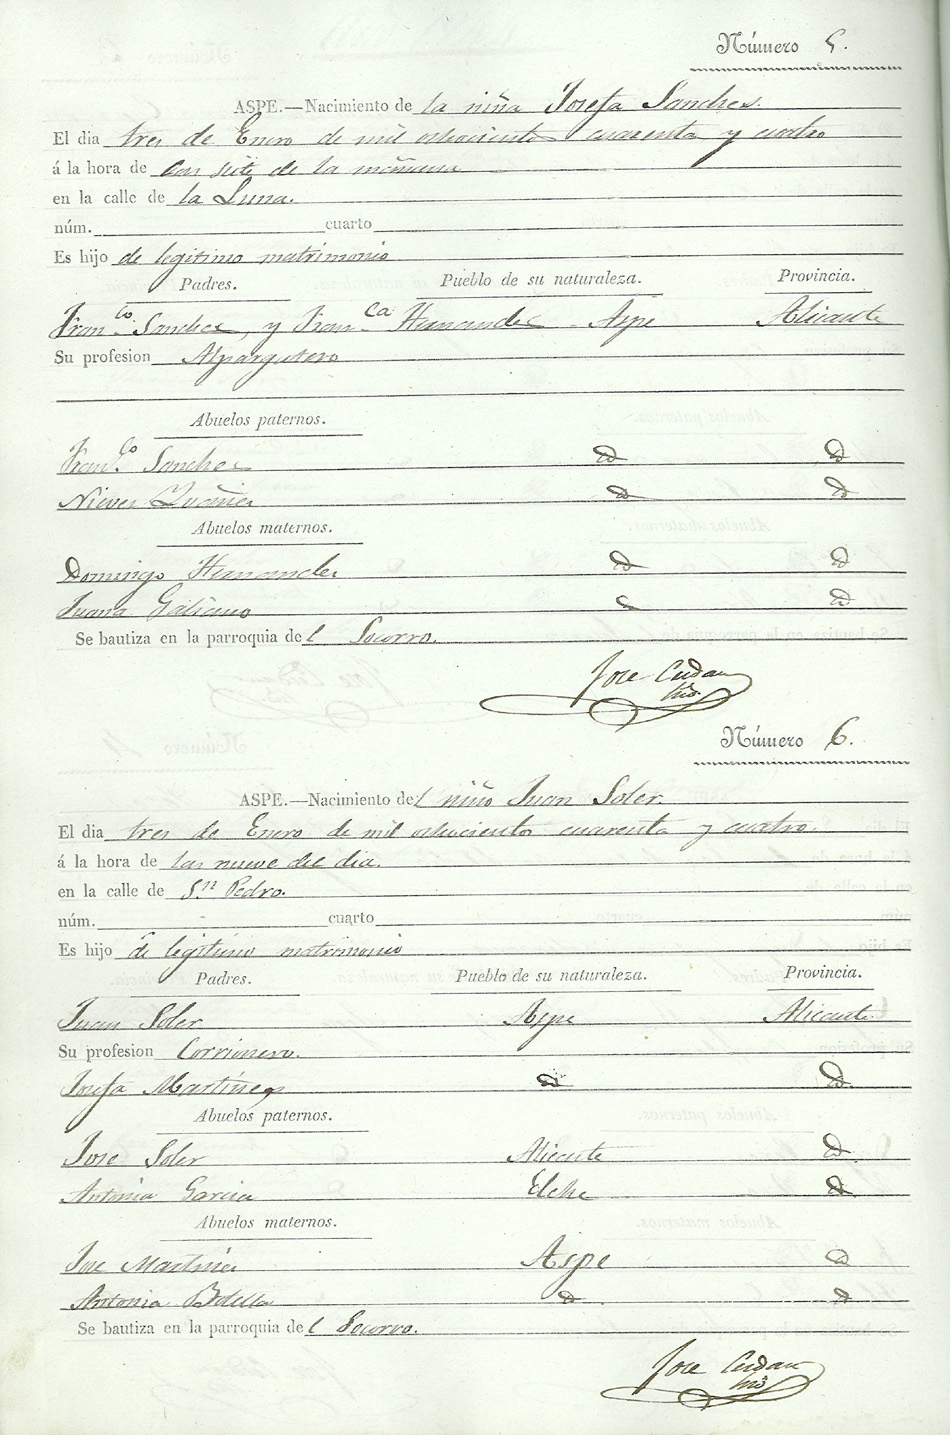 Número 5.
ASPE.—Nacimiento de la niña Josefa Sanchez.
El dia tres de Enero de mil ochociento cuarenta y cuatro
á la hora de las siete de la mañana
en la calle de la Luna.
núm. cuarto
Es hijo de legitimo matrimonio
Padres. Pueblo de su naturaleza. Provincia.
Fran.co Sanchez, y Fran.ca Hernandez Aspe Alicante
Su profesion Alpargatero
Abuelos paternos.
Fran.co Sanchez id id
Nieves id id
Abuelos maternos.
Domingo Hernandez id id
Juana Galiano id
Se bautiza en la parroquia del Socorro.
Jose
Número 6.
ASPE.—Nacimiento del niño Juan Soler.
El dia tres de Enero de mil ochociento cuarenta y cuatro.
á la hora de las nueve del dia.
en la calle de Sn Pedro.
núm. cuarto
Es hijo de legitimo matrimonio
Padres. Pueblo de su naturaleza. Provincia.
Juan Soler Aspe Alicante
Su profesion
Josefa Martinez id id
Abuelos paternos.
Jose Soler Alicante id
Antonia Garcia Elche id
Abuelos maternos.
Jose Martinez Aspe id
Antonia Botella id id
Se bautiza en la parroquia del Socorro.
Jose